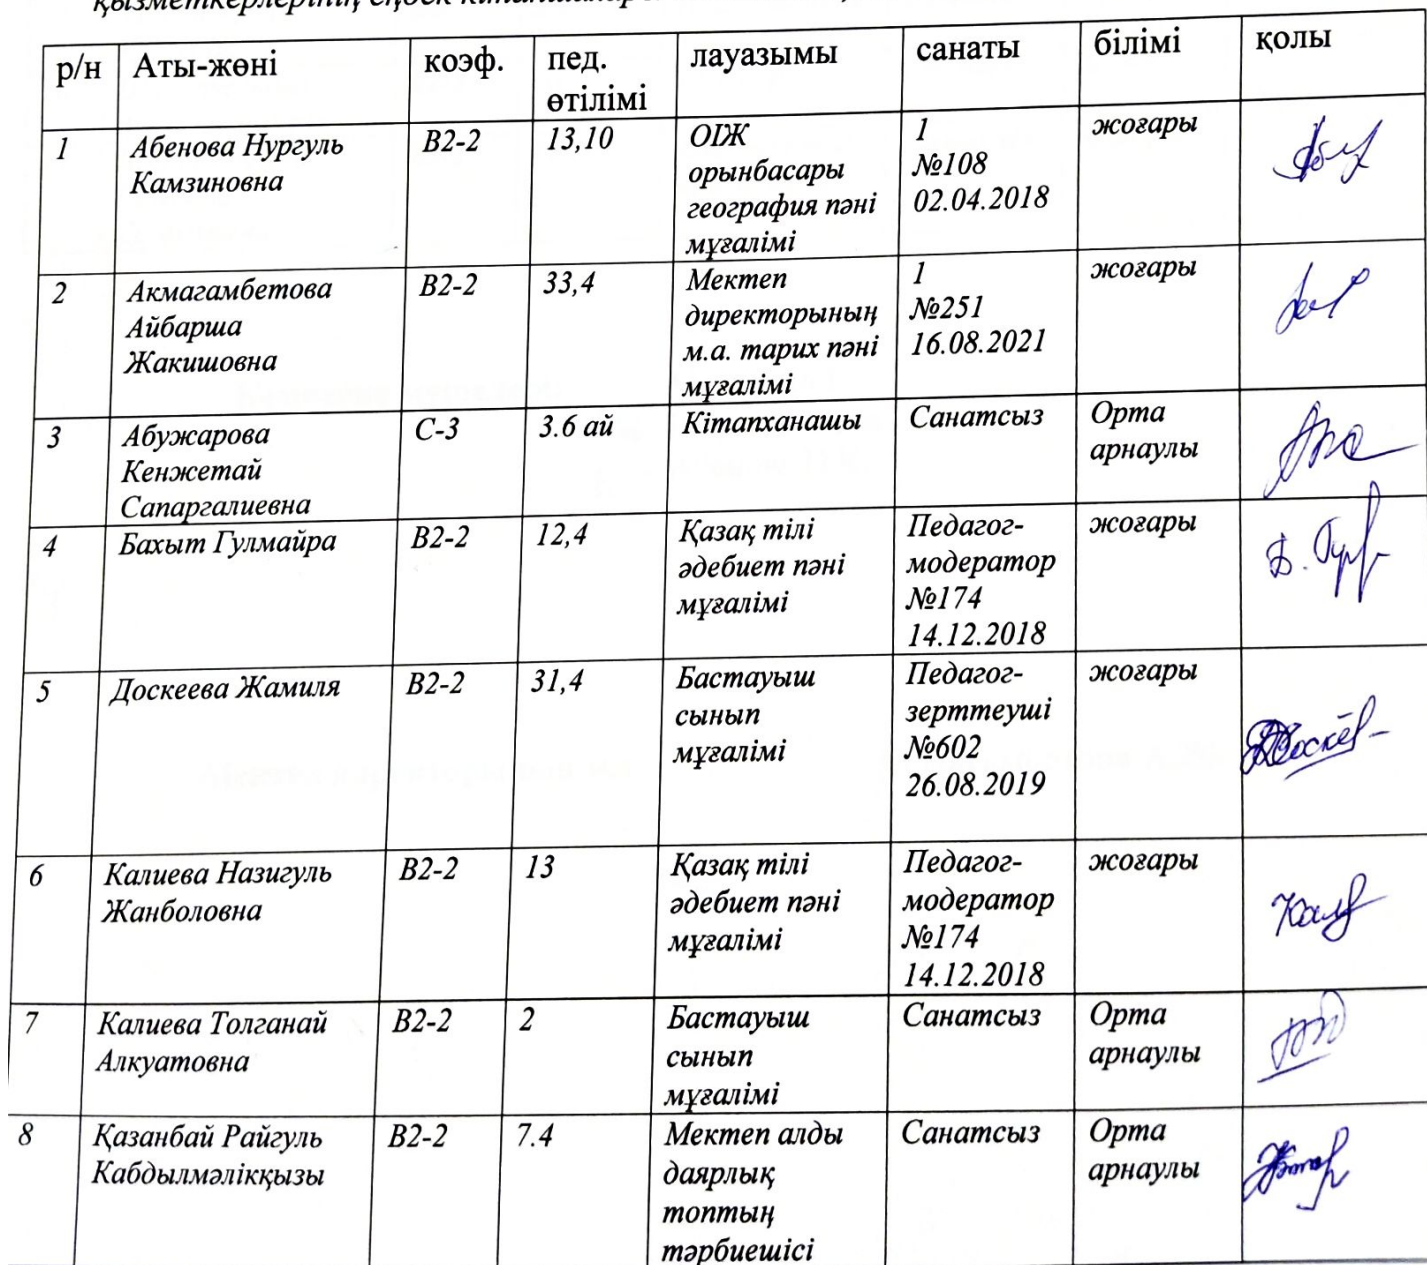 қызметкерлерінің еңбек
р/н Аты-жөні коэф. пед. өтілімі лауазымы санаты білімі қолы
1 Абенова Нургуль Камзиновна В2-2 13,10 ОІЖ орынбасары география пәні мұғалімі 1 №108 02.04.2018 жоғары
2 Акмагамбетова Айбарша Жакишовна В2-2 33,4 Мектеп директорының м.а. тарих пәні мұғалімі 1 №251 16.08.2021 жоғары
3 Абужарова Кенжетай Сапаргалиевна С-3 3.6 ай Кітапханашы Санатсыз Орта арнаулы
4 Бахыт Гулмайра В2-2 12,4 Қазақ тілі әдебиет пәні мұғалімі Педагог-модератор №174 14.12.2018 жоғары
5 Доскеева Жамиля В2-2 31,4 Бастауыш сынып мұғалімі Педагог-зерттеуші №602 26.08.2019 жоғары
6 Калиева Назигуль Жанболовна В2-2 13 Қазақ тілі әдебиет пәні мұғалімі Педагог-модератор №174 14.12.2018 жоғары
7 Калиева Толганай Алкуатовна В2-2 2 Бастауыш сынып мұғалімі Санатсыз Орта арнаулы
8 Қазанбай Райгуль Кабдылмәлікқызы В2-2 7.4 Мектеп алды даярлық топтың тәрбиешісі Санатсыз Орта арнаулы